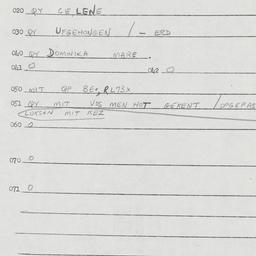 020 QY CE, LENE
030 QY UFGEHONGEN / – ERD
040 QY DOMINIKA MARE.
041 0 042 0
050 MIT GP BE,
051 QY MIT VOS MEN HOT GEKENT / OPGEPAS
LOKSHN MIT KEZ
060 0
070 0
071 0